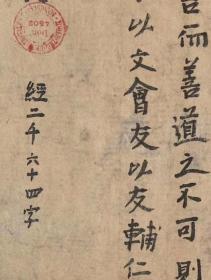 而善道之不可則
以文會友以友輔仁
經二千六十四字